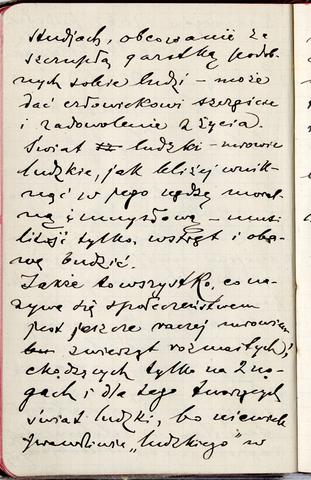 studjach, obcowanie ze
szczupłą garstką podob-
nych sobie ludzi – może
dać człowiekowi szczęście
i zadowolenie z życia.
Świat ludzki – mrowie
ludzkie, jak bliżej wnik-
nąć w jego nędzę moral-
ną i umysłową –
litość tylko, wstręt i oba-
wę budzić.
Także to wszystko, co na-
zywa się społeczeństwem
jest jeszcze raczej
zwierząt rozmaitych,
chodzących tylko na 2 no-
gach i dla tego tworzących
świat ludzki, bo niewiele
prawdziwie „ludzkiego" w